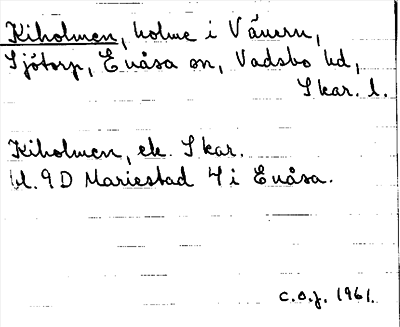 Kiholmen, holme i Vänern,
Sjötorp, Enåsa sn, Vadsbo hd,
Skar. l.
Kiholmen, ek. Skar.
bl. 9D Mariestad 4 i Enåsa.
c.o.j. 1961.